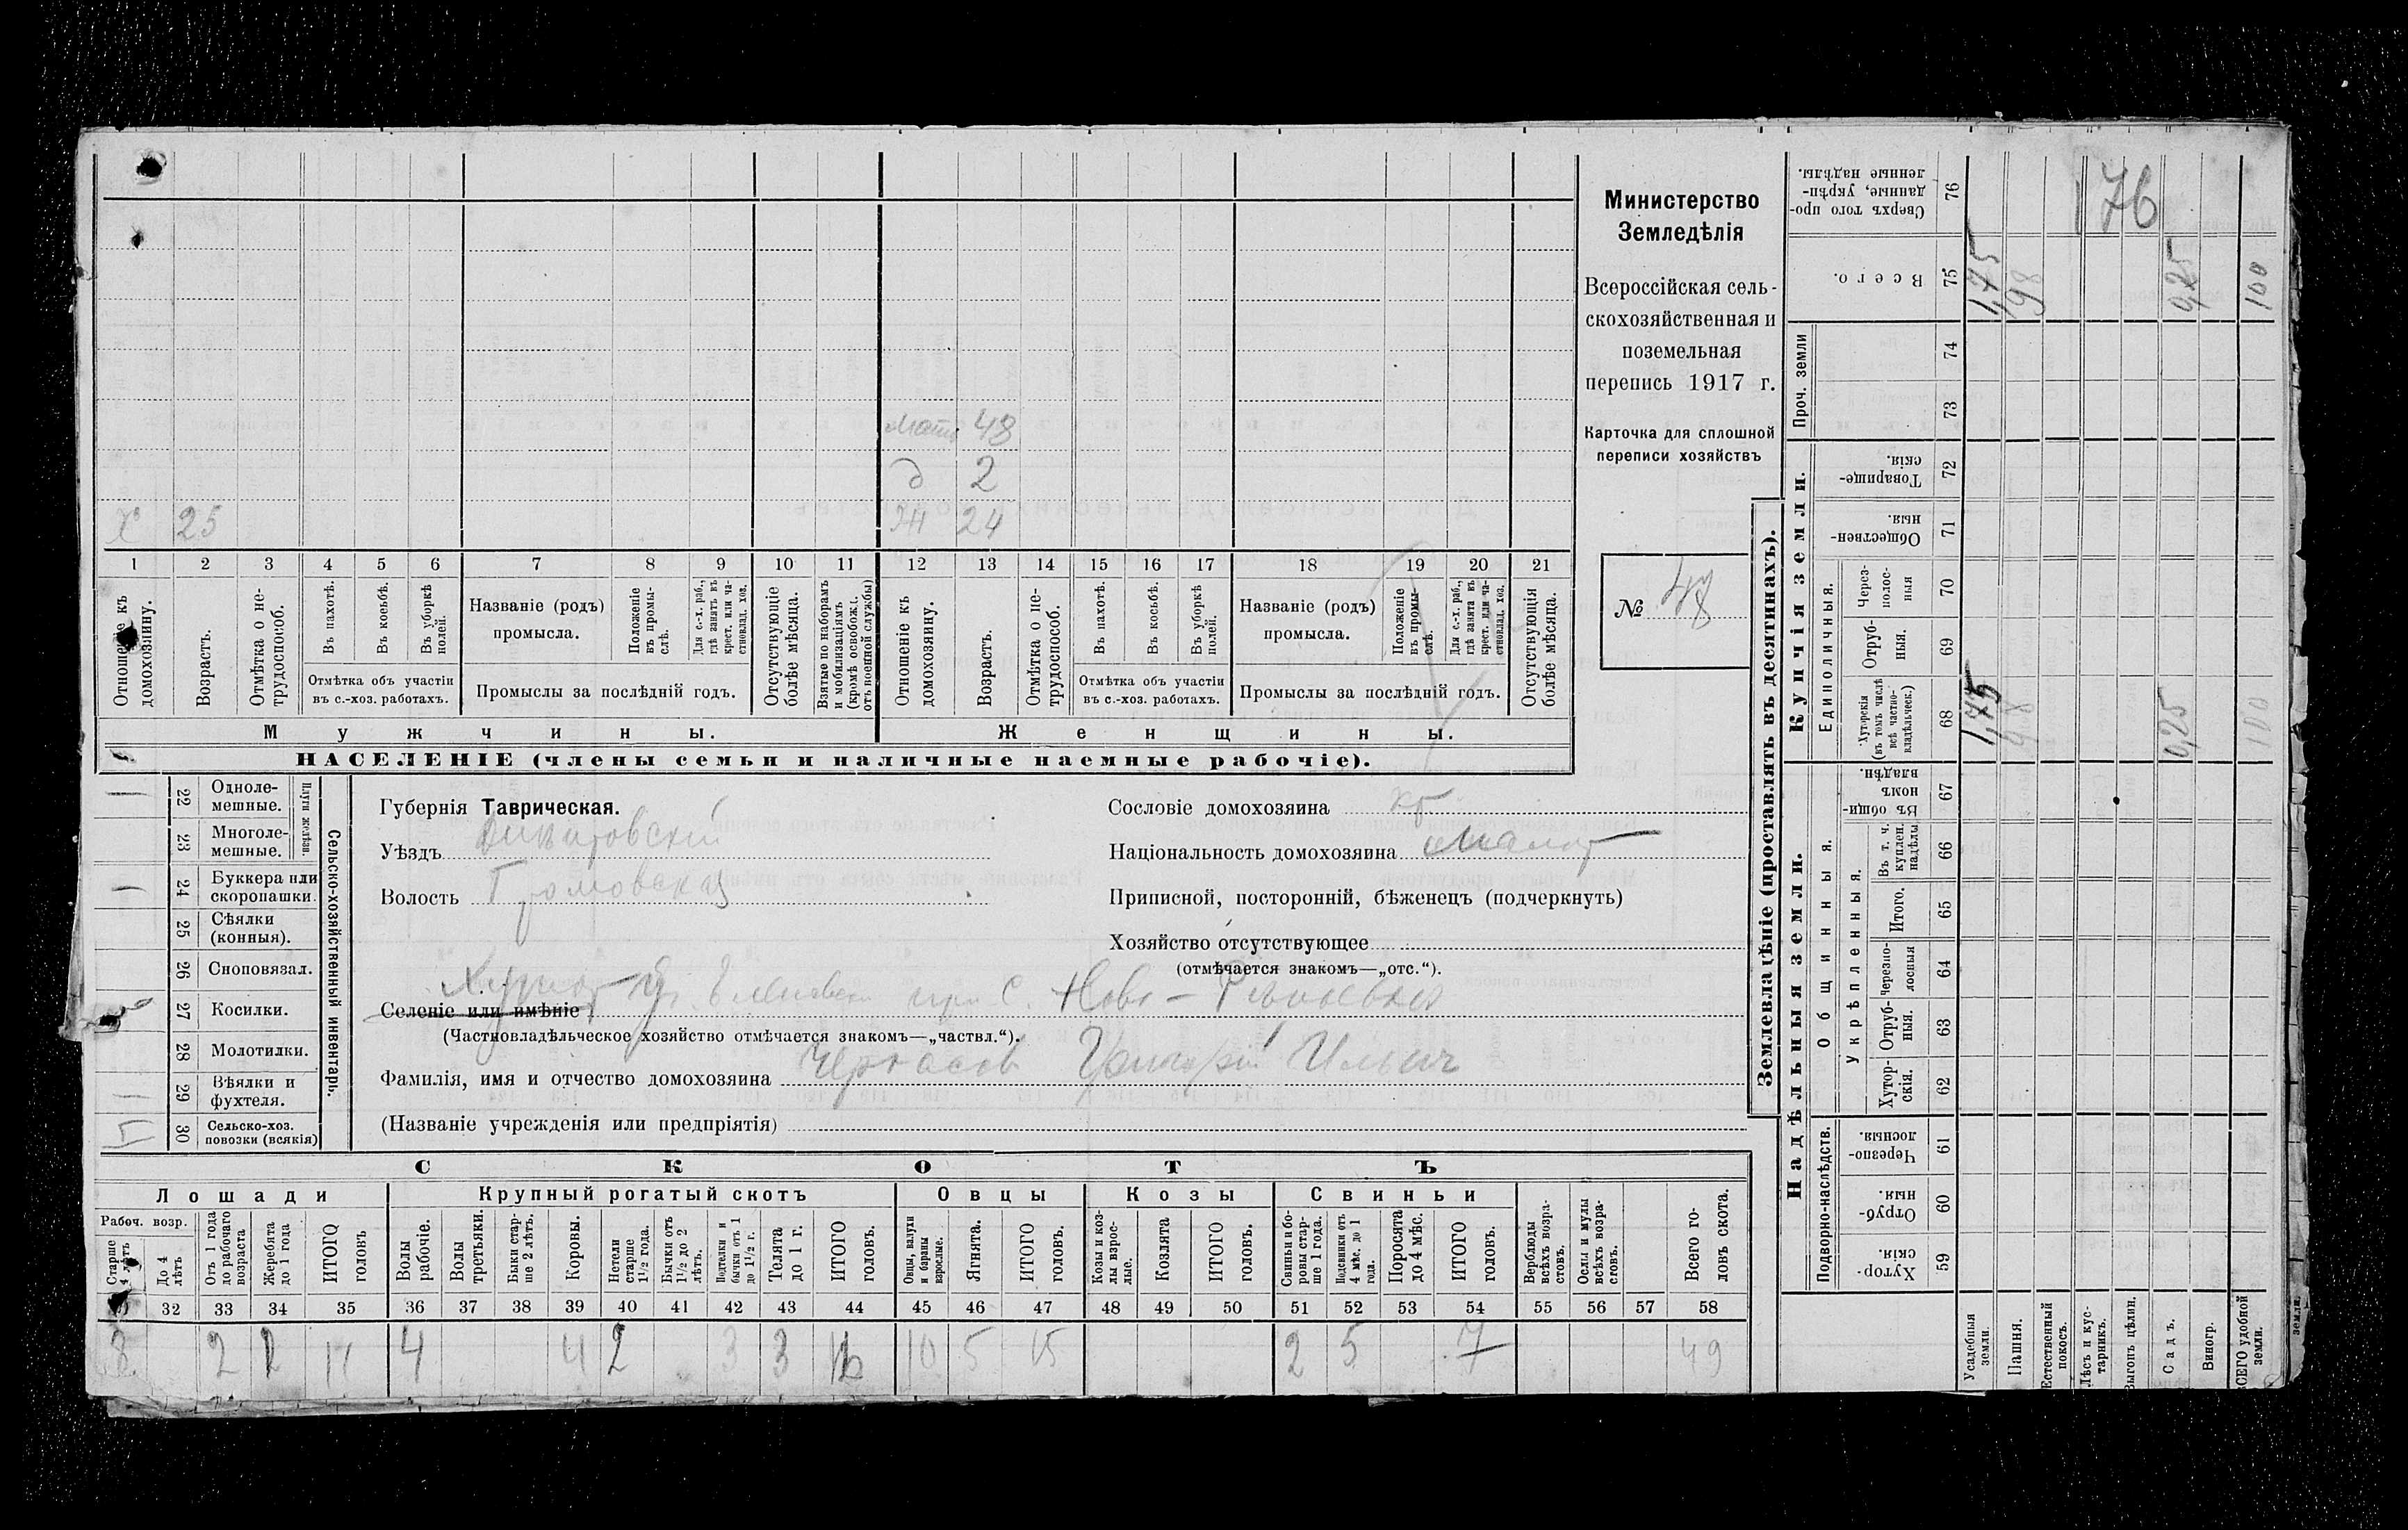 Министерство
Земледѣлія
Всероссійская сель-
скохозяйственная и
поземельная
перепись 1917 г.
Карточка для сплошной
переписи хозяйствъ
№ 48
мать 48
д 2
х 25 ж 24
1 2 3 4 5 6 7 8 9 10 11 12 13 14 15 16 17 18 19 20 21
Отношеніе къ домохозяину.
Возрастъ.
Отмѣтка о не-трудоспособ.
Въ пахотѣ.
Въ косьбѣ.
Въ уборкѣ полей.
Отмѣтка объ участіи
въ с.-хоз. работахъ.
Названіе (родъ)
промысла.
Положеніе въ промы-слѣ.
Для с.-х. раб., гдѣ занятъ въ крест. или ча-стновлад. хоз.
Промыслы за послѣдній годъ.
Отсутствующіе болѣе мѣсяца.
Взятые по наборамъ и мобилизаціямъ (кромѣ освобожд. отъ военной службы)
Отношеніе къ домохозяину.
Возрастъ.
Отмѣтка о не-трудоспособ.
Въ пахотѣ.
Въ косьбѣ.
Въ уборкѣ полей.
Отмѣтка объ участіи
въ с.-хоз. работахъ.
Названіе (родъ)
промысла.
Положеніе въ промы-слѣ.
Для с.-х. раб., гдѣ занята въ крест. или ча-стновлад. хоз.
Промыслы за послѣдній годъ.
Отсутствующія болѣе мѣсяца.
Мужчины. Женщины.
НАСЕЛЕНІЕ (члены семьи и наличные наемные рабочіе).
Сельско-хозяйственный инвентарь.
Плуги желѣзн.
22 Одноле-мешные.
23 Многоле-мешные.
24 Буккера или скоропашки.
25 Сѣялки (конныя).
26 Сноповязал.
27 Косилки.
28 Молотилки.
29 Вѣялки и фухтеля.
30 Сельско-хоз. повозки (всякія)
Губернія Таврическая.
Уѣздъ
Волость Громовская
Селеніе или имѣніе
(Частновладѣльческое хозяйство отмѣчается знакомъ—„частвл.“).
Фамилія, имя и отчество домохозяина Черкасов Григорій Ильич
(Названіе учрежденія или предпріятія)
Сословіе домохозяина кр
Національность домохозяина малор
Приписной, посторонній, бѣженецъ (подчеркнуть)
Хозяйство отсутствующее
(отмѣчается знакомъ—„отс.“).
СКОТЪ
Лошади Крупный рогатый скотъ Овцы Козы Свиньи
Рабоч. возр.
Старше 4 лѣтъ
До 4 лѣтъ
Отъ 1 года до рабочаго возраста
Жеребята до 1 года
ИТОГО головъ
Волы рабочіе.
Волы третьяки.
Быки стар-ше 2 лѣтъ.
Коровы.
Нетели старше 1½ года.
Бычки отъ 1½ до 2 лѣтъ.
Подтелки и бычки отъ 1 до 1½ г.
Телята до 1 г.
ИТОГО головъ.
Овцы, валухи и бараны взрослые.
Ягнята.
ИТОГО головъ.
Козы и коз-лы взрос-лые.
Козлята
ИТОГО головъ.
Свиньи и бо-ровы стар-ше 1 года.
Подсвинки отъ 4 мѣс. до 1 года.
Поросята до 4 мѣс.
ИТОГО головъ.
Верблюды всѣхъ возра-стовъ.
Ослы и мулы всѣхъ возра-стовъ.
Всего го-ловъ скота.
32 33 34 35 36 37 38 39 40 41 42 43 44 45 46 47 48 49 50 51 52 53 54 55 56 57 58
8 2 1 11 4 4 2 3 3 16 10 5 15 2 5 7 49
Землевладѣніе (проставлять въ десятинахъ).
Надѣльныя земли.
Купчія земли.
Проч. земли
Подворно-наслѣдств.
Общинныя.
Укрѣпленныя.
Единоличныя.
Сверхъ того про-данные, укрѣп-ленные надѣлы. 76
Всего. 75
74
73
Товарище-скія. 72
Обществен-ныя. 71
Через-полос-ныя 70
Отруб-ныя. 69
Хуторскія (въ томъ числѣ всѣ частно-владѣльческ.) 68
Въ общин-номъ владѣн. 67
Въ т. ч. куплен. надѣлы 66
Итого. 65
Черезпо-лосныя 64
Отруб-ныя. 63
Хутор-скія. 62
Черезпо-лосныя 61
Отруб-ныя. 60
Хутор-скія. 59
Усадебныя земли.
Пашня.
Естественный покосъ.
Лѣсъ и кус-тарникъ.
Выгонъ цѣлин.
Садъ.
Виногр.
ВСЕГО удобной земли.
земли.
1,75 98 0,25 100
1,75 98 0,25 100
176